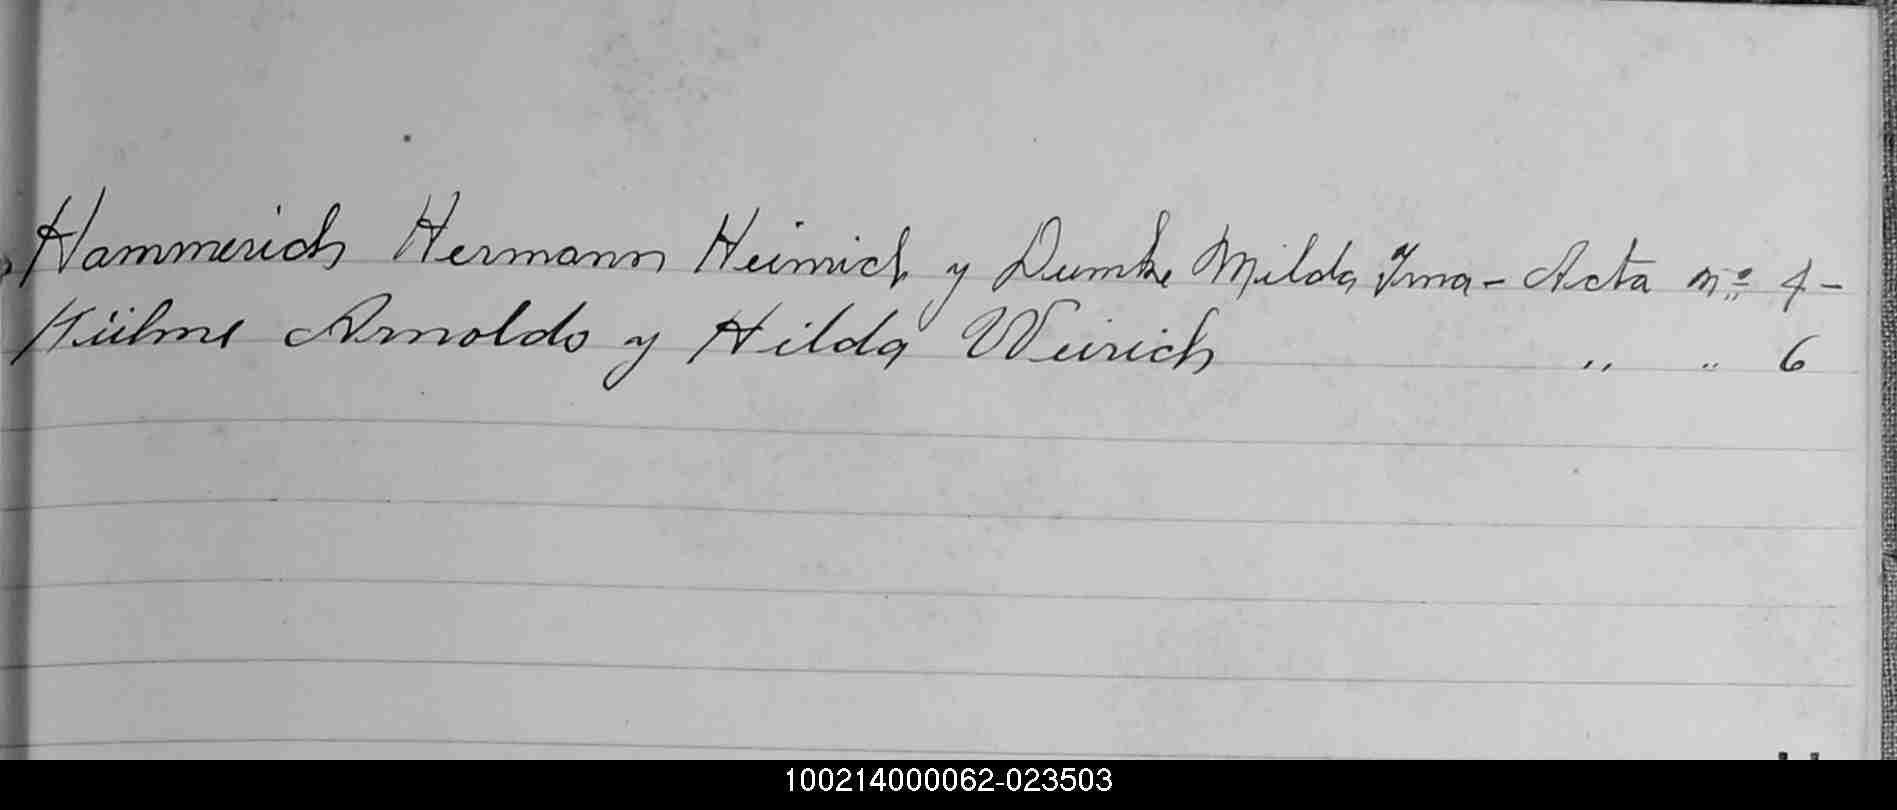 Hammerich Hermann Heinrich y Dumke Milda Irma - Acta nº 4 -
Kühne Arnoldo y Hilda Weirich " " 6
100214000062-023503